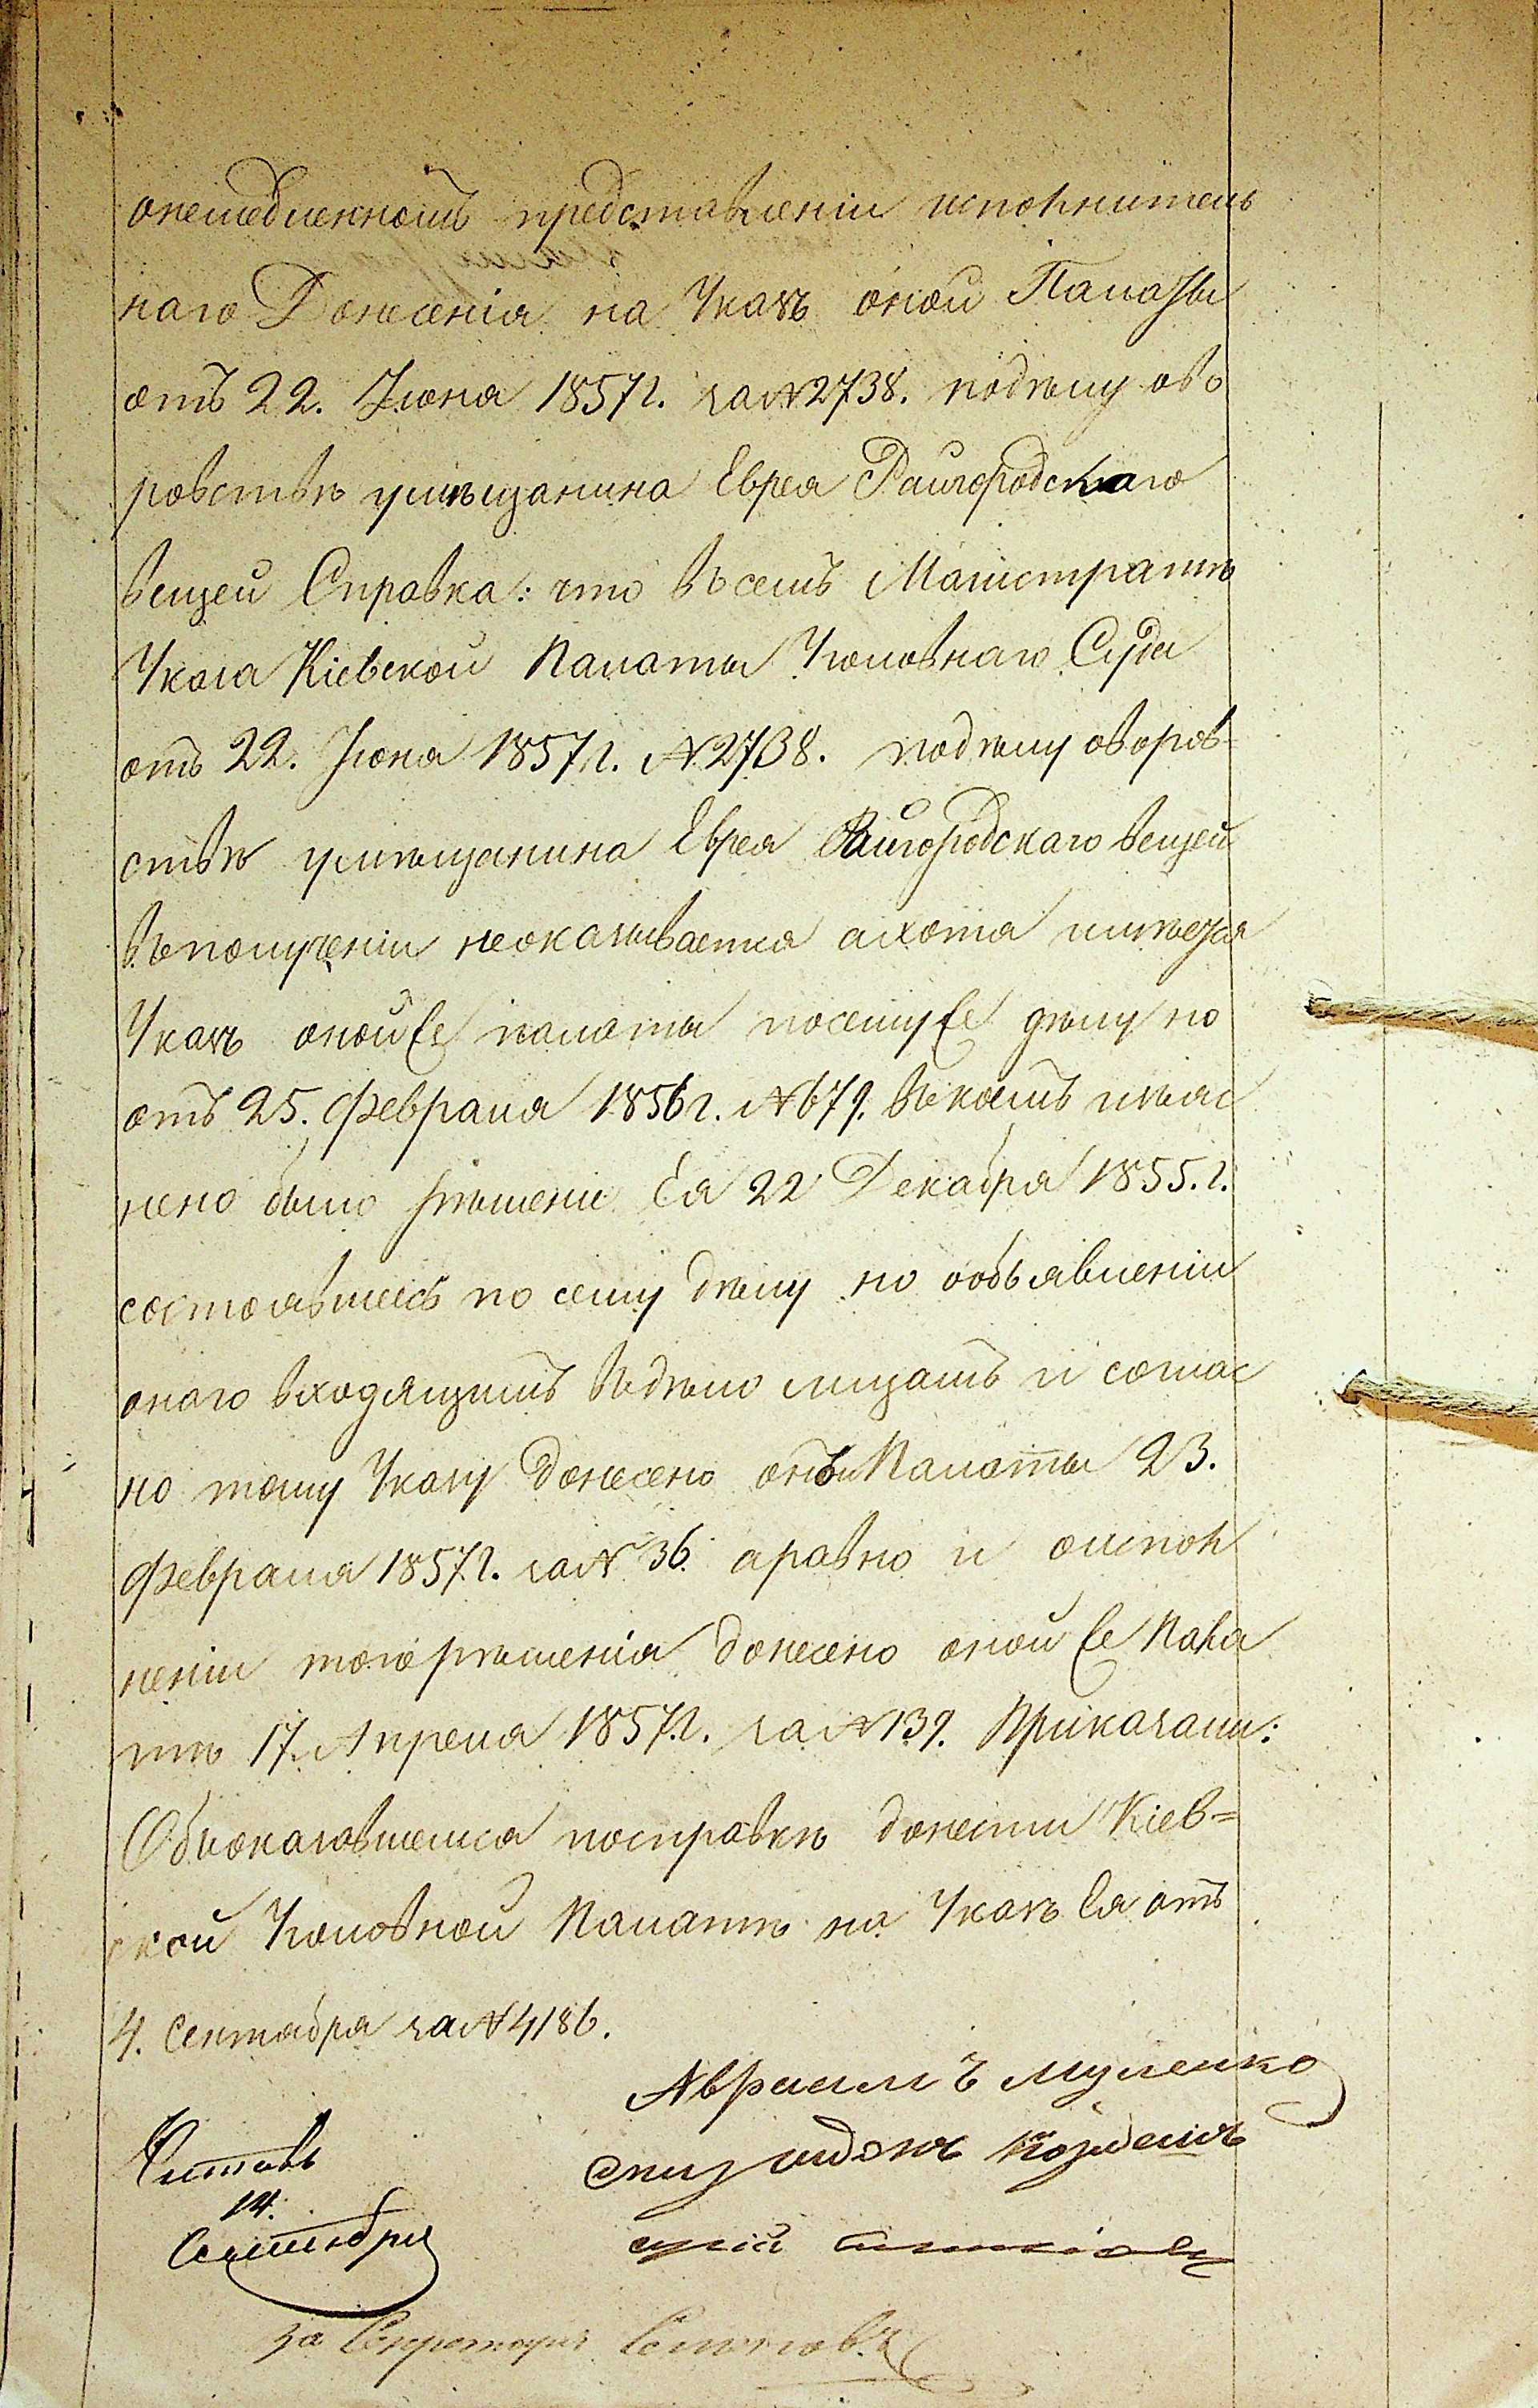 онемедленномъ представленіи исполнитель
наго Донесенія на Указъ оной Палаты
отъ 22. Іюня 1857 г. за № 2738. поделу ово
ровствѣ умѣщанина Еврея Райгородскаго
вещей Справка: что въ семъ Магистратѣ
Указа Кіевской Палаты Уголовнаго Суда
отъ 22. Іюня 1857 г. № 2738. поделу оворов=
ствѣ умѣщанина Еврея Райгородскаго вещей
въполученіи неоказывается ахотя имѣется
Указъ онойже палаты посемуже дѣлу но
отъ 25. Февраля 1856 г. № 679. въкоемъ изъяс
нено было рѣшеніе Ея 22 Декабря 1855. г.
состоявшееся по сему дѣлу но ообъявленіи
онаго входящимъ въдѣло лицамъ и соглас
но тому Указу донесено Палаты 23.
Февраля 1857 г. за № 36. аравно и оиспол
неніи тогорѣшенія донесено онойже Пала
тѣ 17. Апреля 1857. г. за № 139. Приказали:
Обоказавшемся посправкѣ донести Кіев=
ской Уголовной Палатѣ на Указъ Ея отъ
4. Сентября за № 4186.
Авраамъ
Читалъ
14.
Сентября
за Секретаря